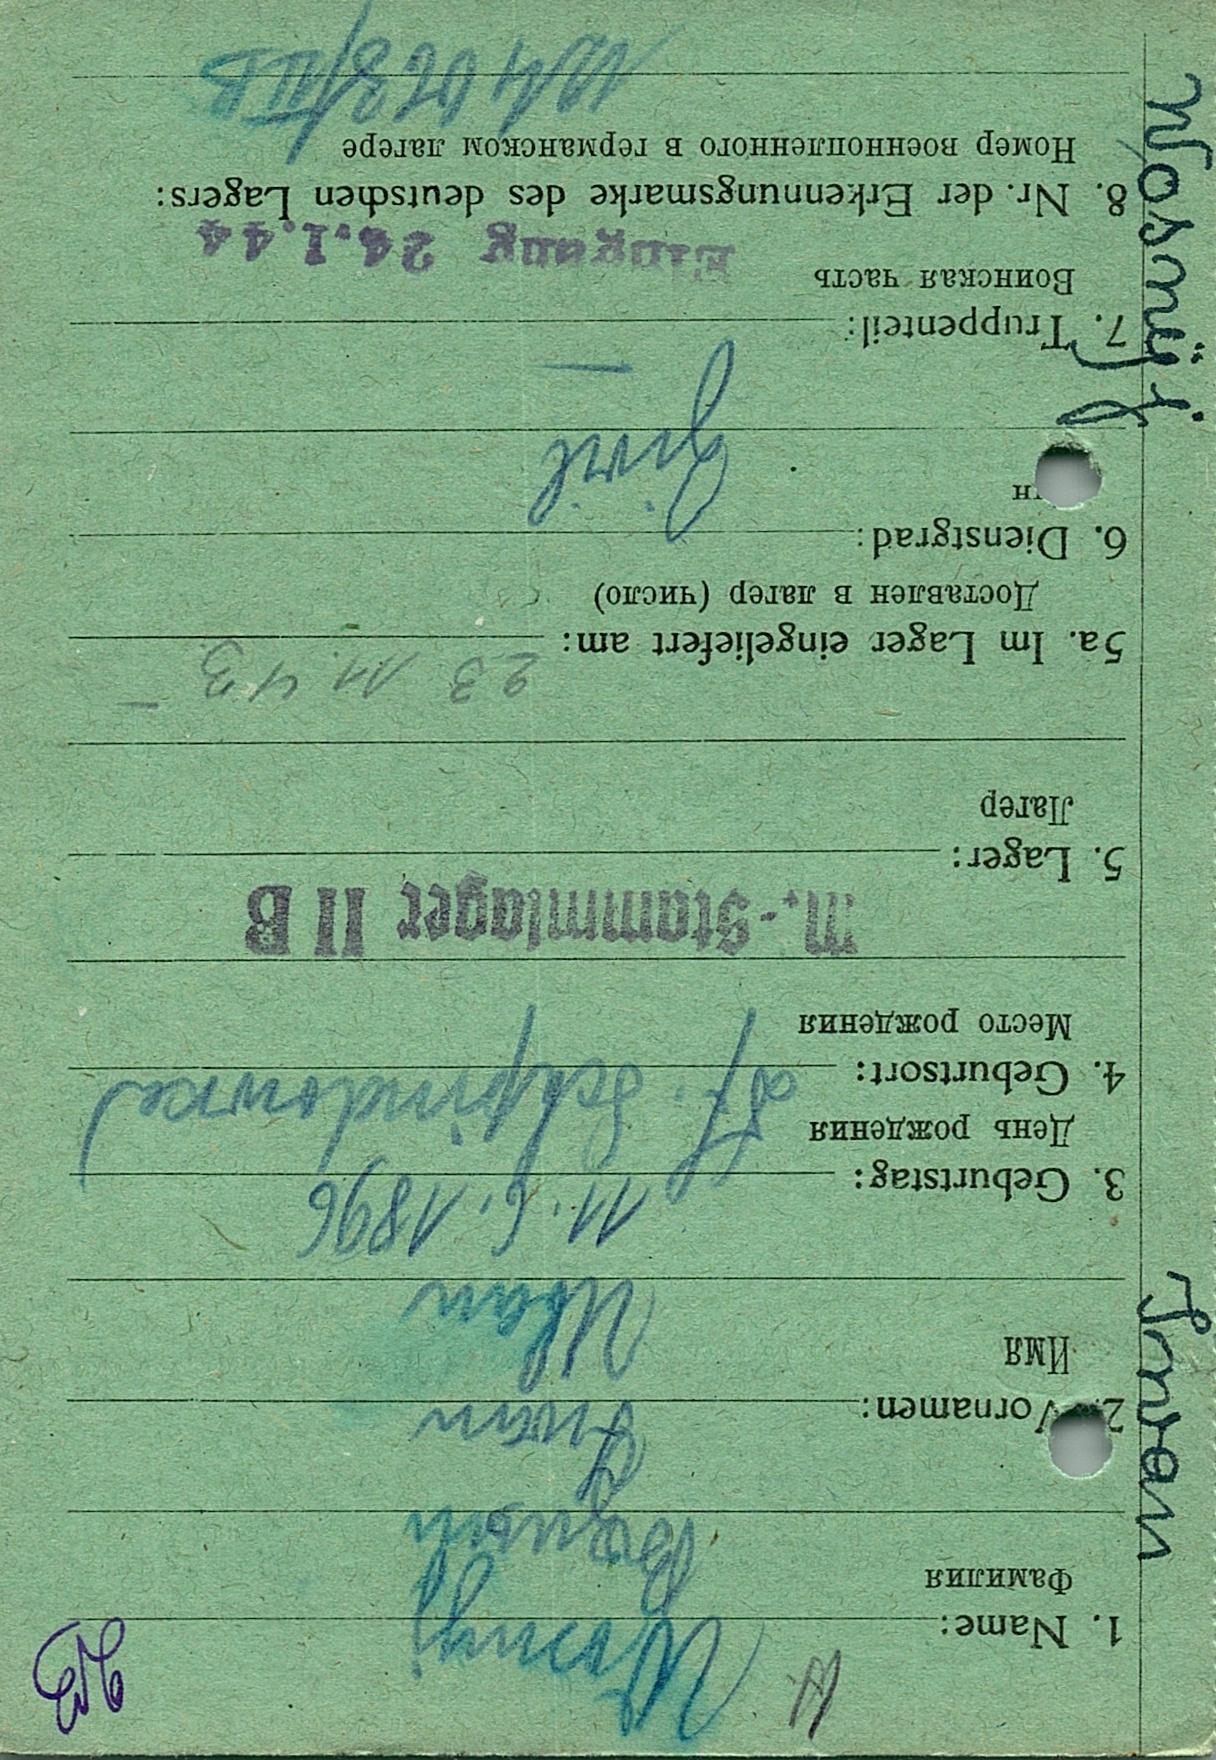 1. Name: Wosnyj
Фамилия Возный
2. Vornamen: Iwan
Имя Иван
3. Geburtstag: 11.6.1896
День рождения
4. Geburtsort:
Место рождения
M.-Stammlager II B
5. Lager:
Лагер
5a. Im Lager eingeliefert am: 23 11. 43. –
Доставлен в лагер (число)
6. Dienstgrad: Zivil
7. Truppenteil: —
Воинская часть
Eingang 24.1.44
8. Nr. der Erkennungsmarke des deutschen Lagers:
Номер военнопленного в германском лагере
Wosnüj
Iwan